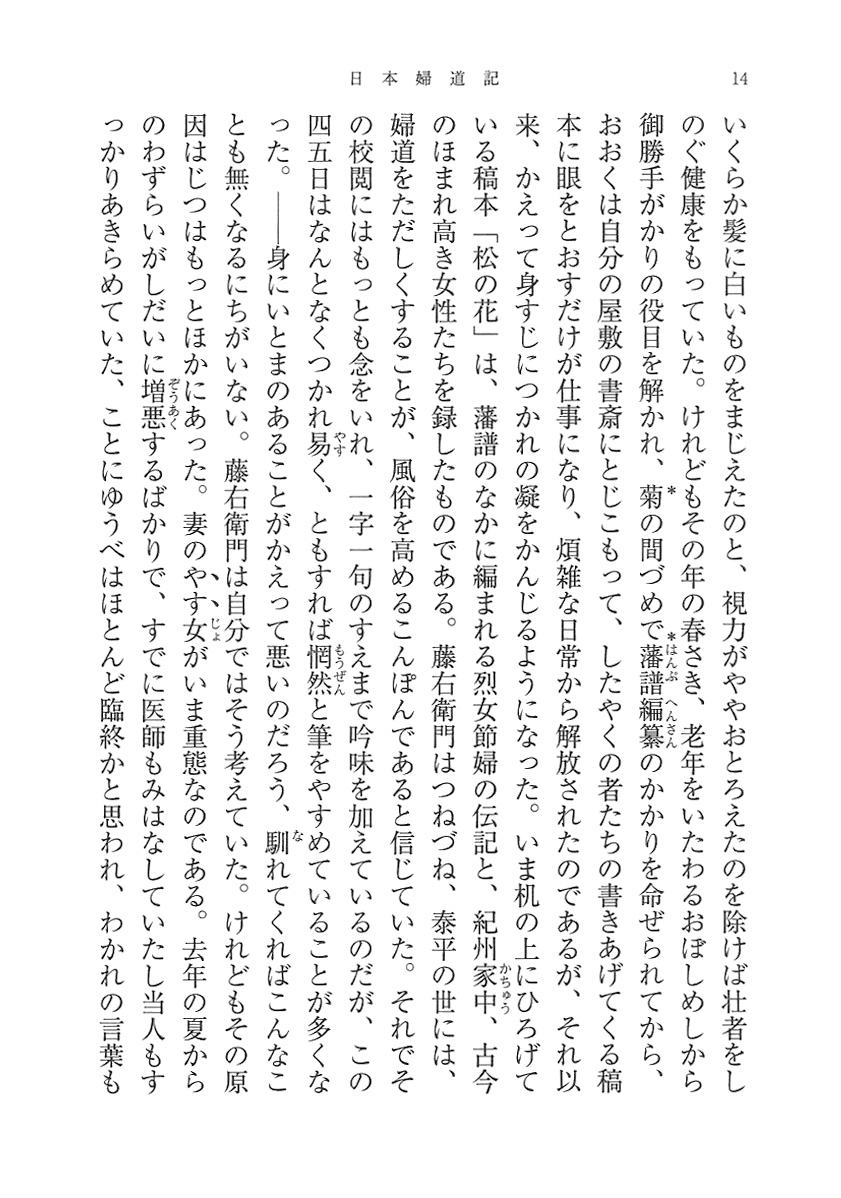 14
日本婦道記
いくらか髪に白いものをまじえたのと、視力がややおとろえたのを除けば壮者をし
のぐ健康をもっていた。けれどもその年の春さき、老年をいたわるおぼしめしから
御勝手がかりの役目を解かれ、菊*の間づめで*藩譜はんぷ編纂へんさんのかかりを命ぜられてから、
おおくは自分の屋敷の書斎にとじこもって、したやくの者たちの書きあげてくる稿
本に眼をとおすだけが仕事になり、煩雑な日常から解放されたのであるが、それ以
来、かえって身すじにつかれの凝をかんじるようになった。いま机の上にひろげて
いる稿本「松の花」は、藩譜のなかに編まれる烈女節婦の伝記と、紀州家中かちゅう、古今
のほまれ高き女性たちを録したものである。藤右衛門はつねづね、泰平の世には、
婦道をただしくすることが、風俗を高めるこんぽんであると信じていた。それでそ
の校閲にはもっとも念をいれ、一字一句のすえまで吟味を加えているのだが、この
四五日はなんとなくつかれ易やすく、ともすれば惘然もうぜんと筆をやすめていることが多くな
った。――身にいとまのあることがかえって悪いのだろう、馴なれてくればこんなこ
とも無くなるにちがいない。藤右衛門は自分ではそう考えていた。けれどもその原
因はじつはもっとほかにあった。妻のやす女じょがいま重態なのである。去年の夏から
のわずらいがしだいに増悪ぞうあくするばかりで、すでに医師もみはなしていたし当人もす
っかりあきらめていた、ことにゆうべはほとんど臨終かと思われ、わかれの言葉も